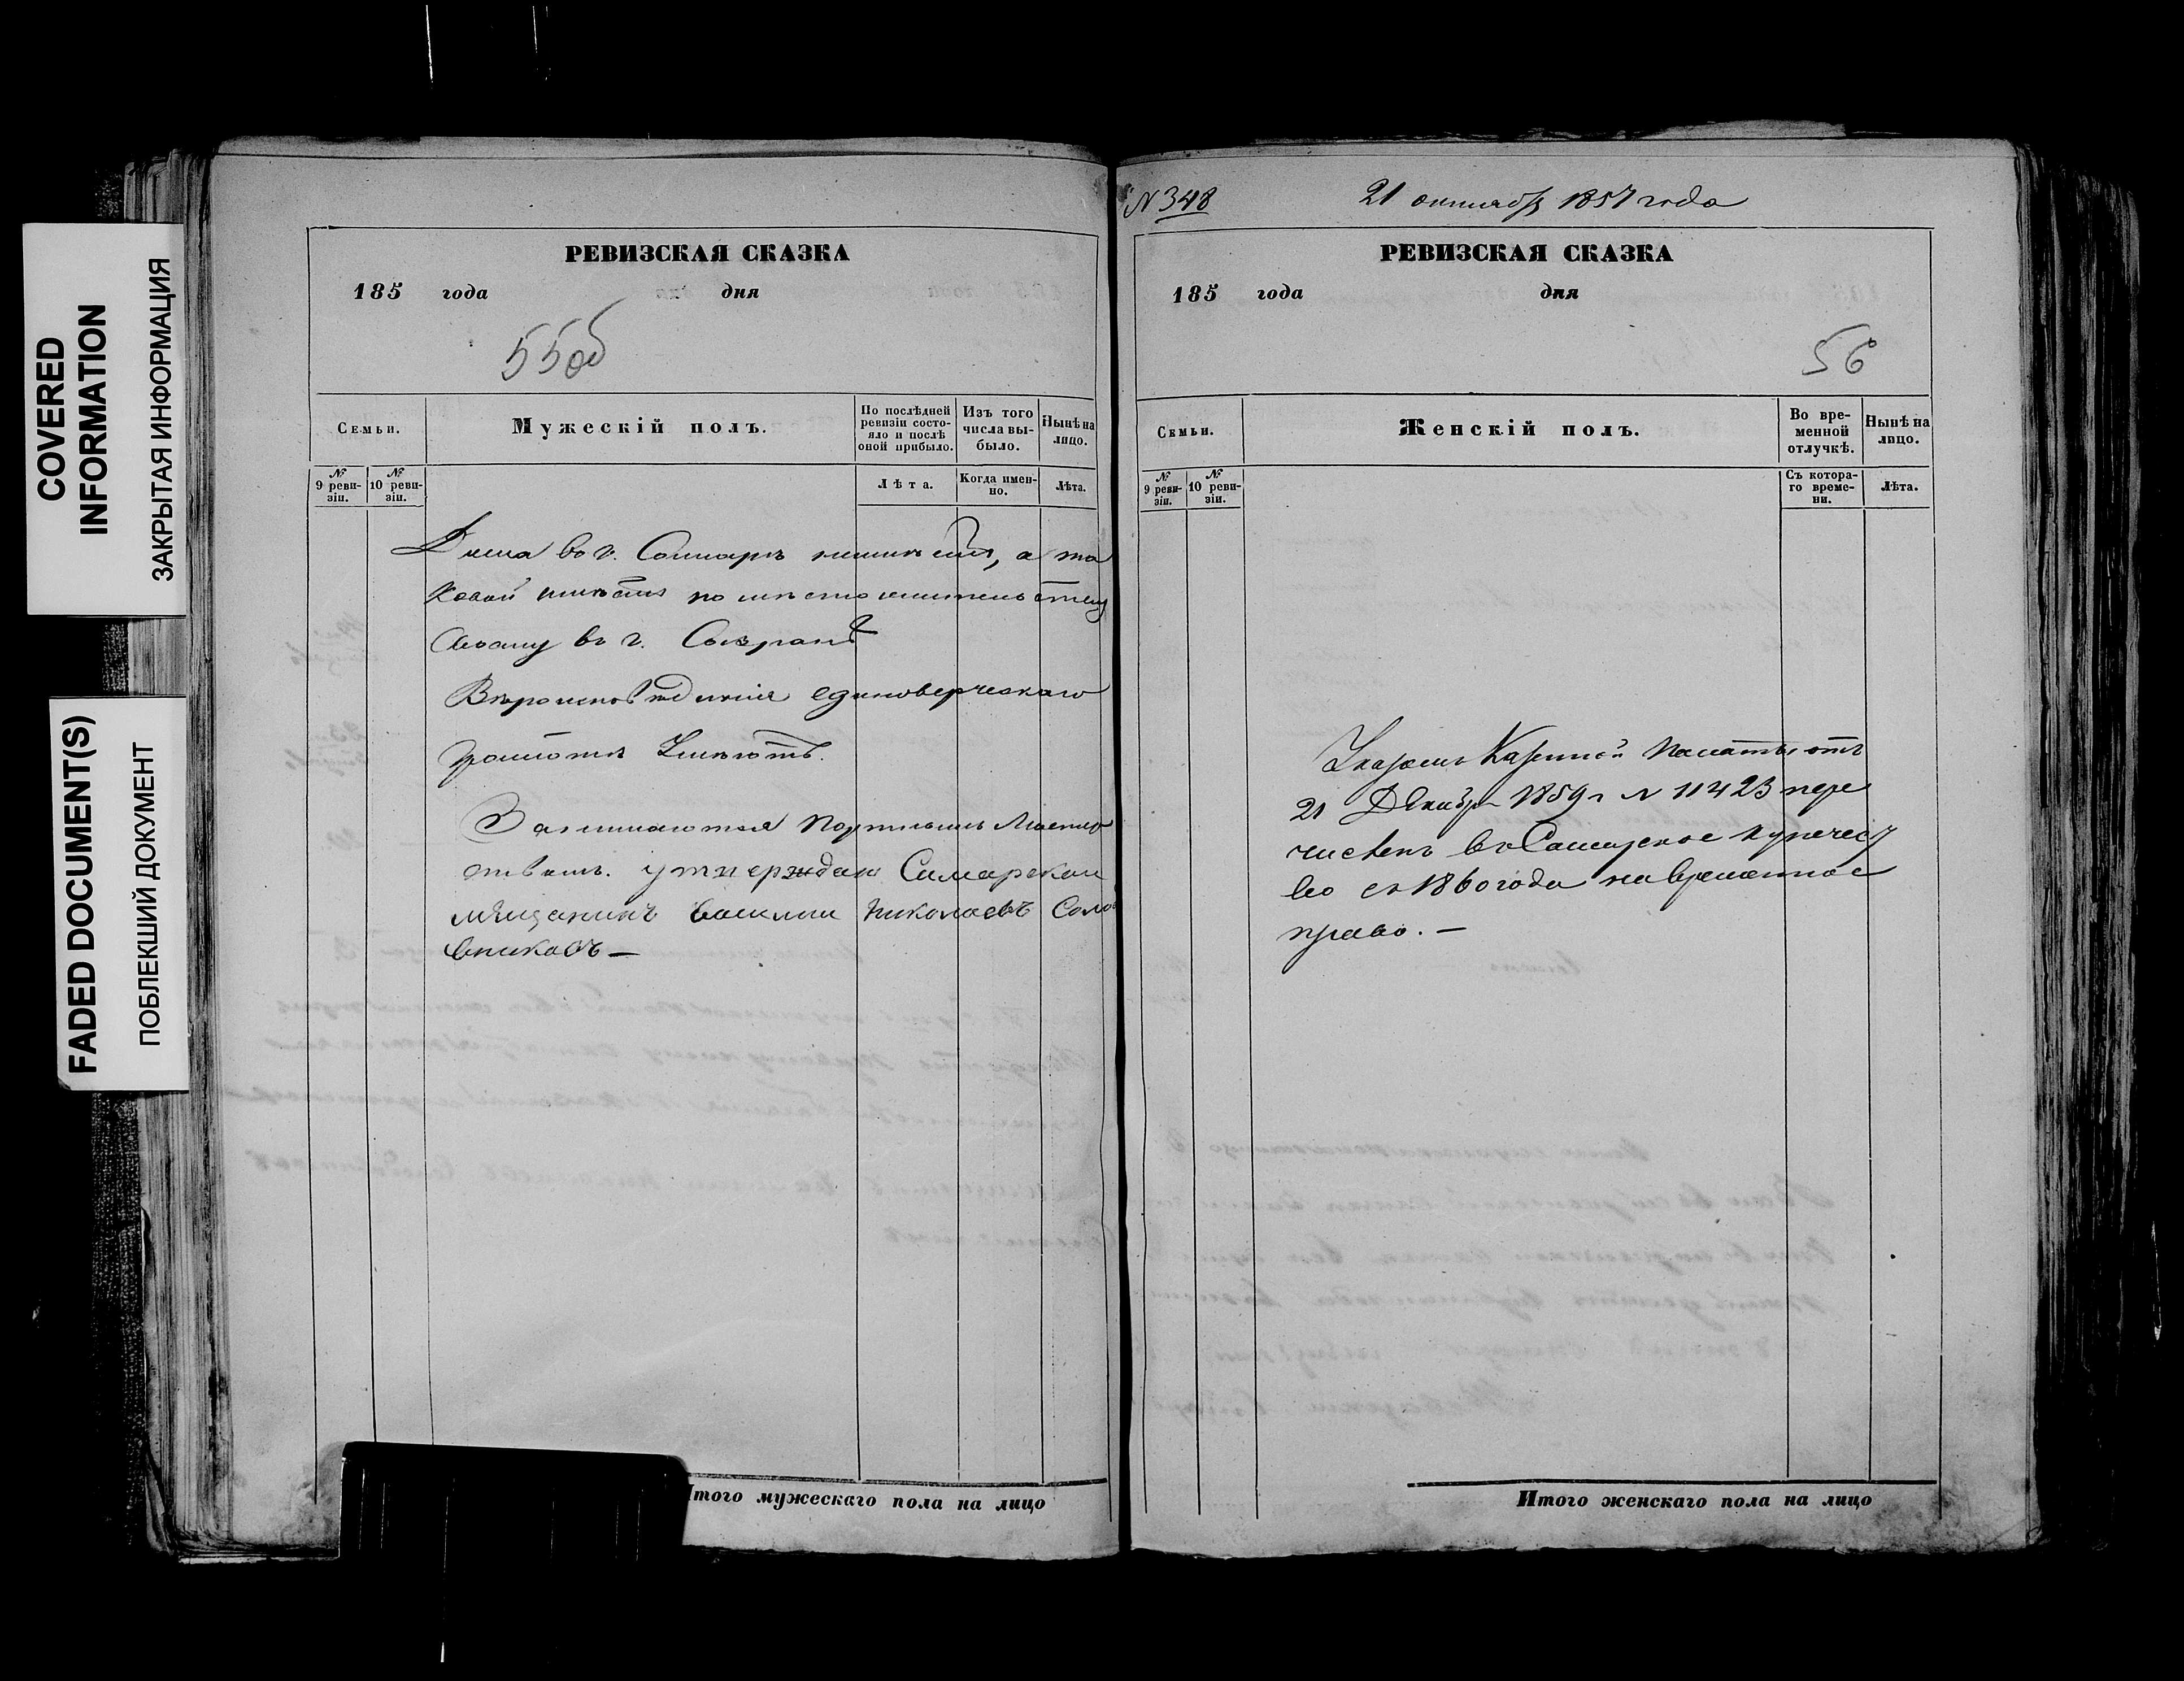 COVERED
INFORMATION
ЗАКРЫТАЯ ИНФОРМАЦИЯ
FADED DOCUMENT(S)
ПОБЛЕКШИЙ ДОКУМЕНТ
РЕВИЗСКАЯ СКАЗКА
185 года дня
55об
Семьи.
Мужескій полъ.
По послѣдней ревизіи состо-
яло и послѣ
оной прибыло.
Изъ того
числа вы-
было.
Нынѣ на
лицо.
№
9 реви-
зіи.
№
10 реви-
зіи.
Лѣта.
Когда имен-
но.
Лѣта.
Дома во г. Самарѣ неимѣетъ, а та
ковой имѣетъ по мѣсто жительству
своему въ г. Сызранѣ
Вѣроисповѣданія единоверческаго
грамотѣ Умѣютъ.
Занимаются Портнымъ Мастер
ствомъ. утверждаю Самарскои
мѣщанинъ василии Николаевъ Соло
вниковъ —
Итого мужескаго пола на лицо
N 348
21 октября 1857 года
РЕВИЗСКАЯ СКАЗКА
185 года дня
56
Семьи.
Женскій полъ.
Во вре-
менной
отлучкѣ.
Нынѣ на
лицо.
№
9 реви-
зіи.
№
10 реви-
зіи.
Съ котора-
го време-
ни.
Лѣта.
Указомъ Казенной Палаты отъ
21 Декабря 1859 г N 11423 пере
численъ въ Самарское купечест
во съ 1860 года на временное
право. —
Итого женскаго пола на лицо